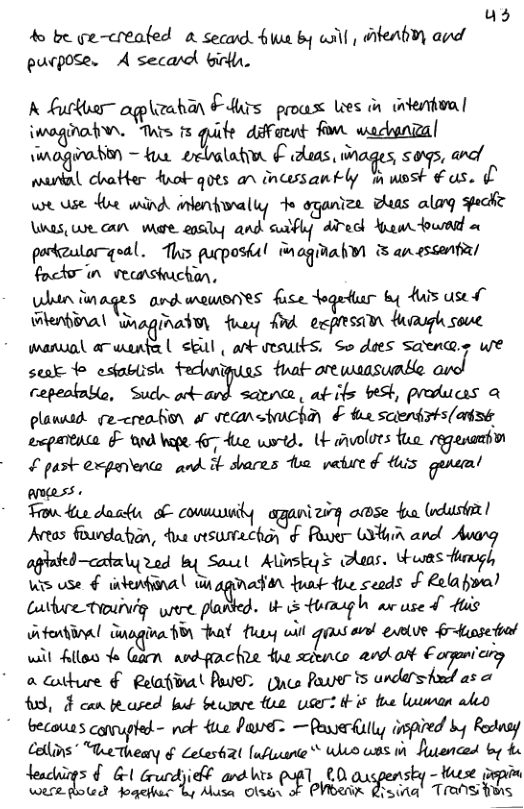 43
to be re-created a second time by will, intention, and
purpose. A second birth.
A further application of this process lies in intentional
imagination. This is quite different from mechanical
imagination - the exhalation of ideas, images, songs, and
mental chatter that goes on incessantly in most of us. If
we use the mind intentionally to organize ideas along specific
lines, we can more easily and swiftly direct them toward a
particular goal. This purposful imagination is an essential
factor in reconstruction.
When images and memories fuse together by this use of
intentional imagination they find expression through some
manual or mental skill, art results. So does science, we
seek to establish techniques that are measurable and
repeatable. Such art and science, at its best, produces a
planned re-creation or reconstruction of the scientists/artists
experience of and hope for, the world. It involves the regeneration
of past experience and it shares the nature of this general
process.
From the death of community organizing arose the Industrial
Areas Foundation, the resurrection of Power Within and Among
agitated-catalyzed by Saul Alinsky's ideas. It was through
his use of intentional imagination that the seeds of Relational
Culture Training were planted. It is through our use of this
intentional imagination that they will grow and evolve for those that
will follow to learn and practize the science and art of organizing
a culture of Relational Power. Once Power is understood as a
tool, it can be used but beware the user: it is the human who
becomes corrupted - not the Power. - Powerfully inspired by Rodney
Collins' "The Theory of Celestial Influence" who was influenced by the
teachings of G-I Gurdjieff and his pupil P.D. Ouspensky - these
were together by Musa Olsen of Phoenix Rising Transitions